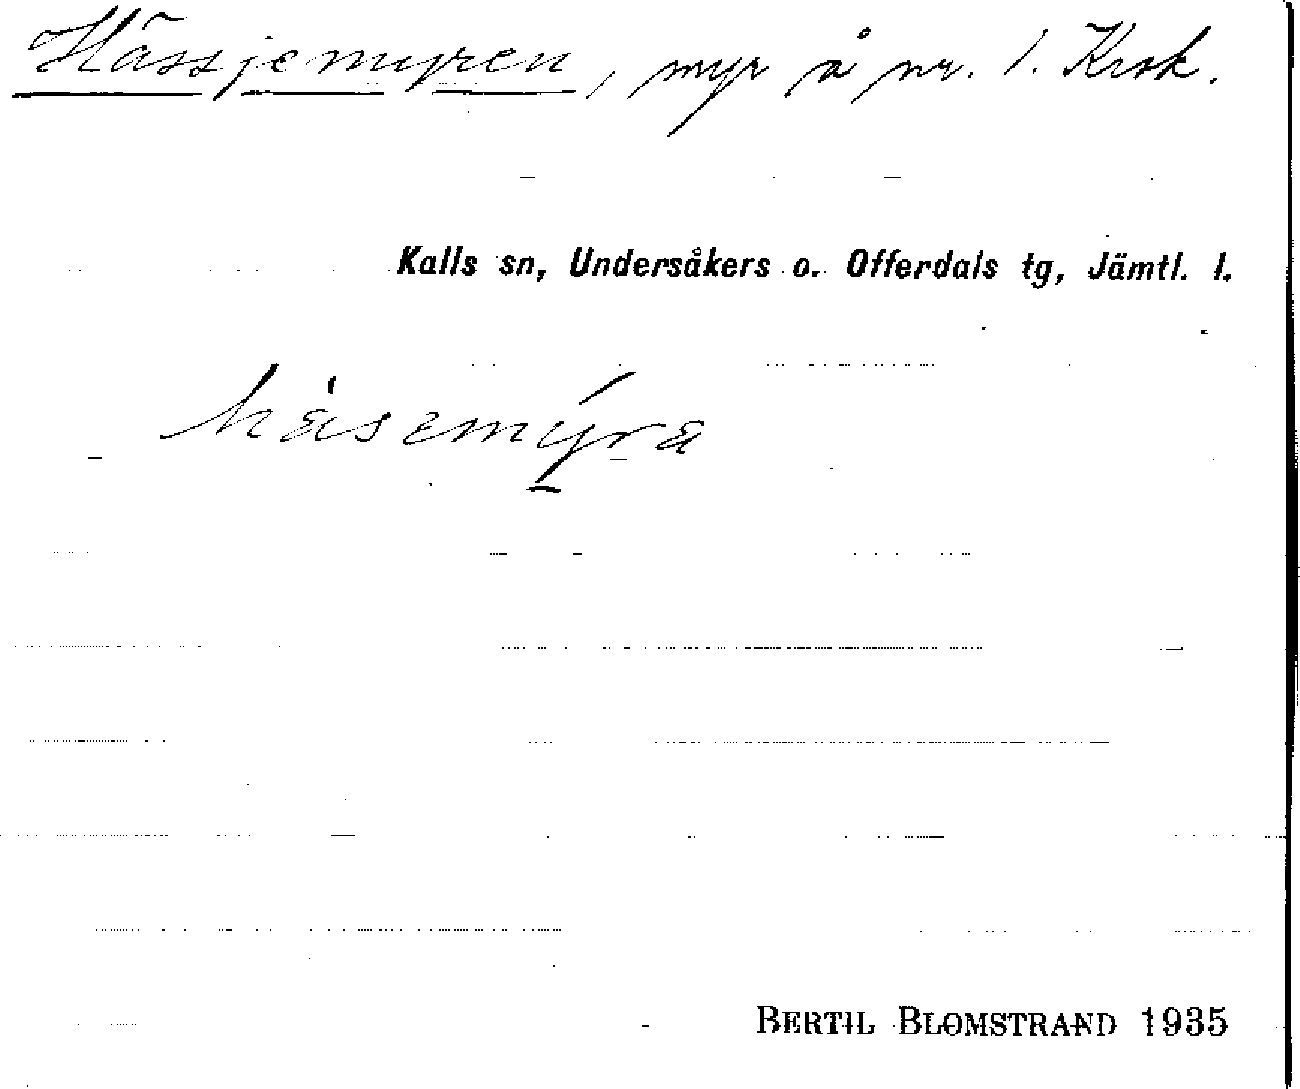 Hässjemyren, myr å nr. 1. Krok.
Kalls sn, Undersåkers o. Offerdals tg, Jämtl. l.
hásemýra
BERTIL BLOMSTRAND 1935